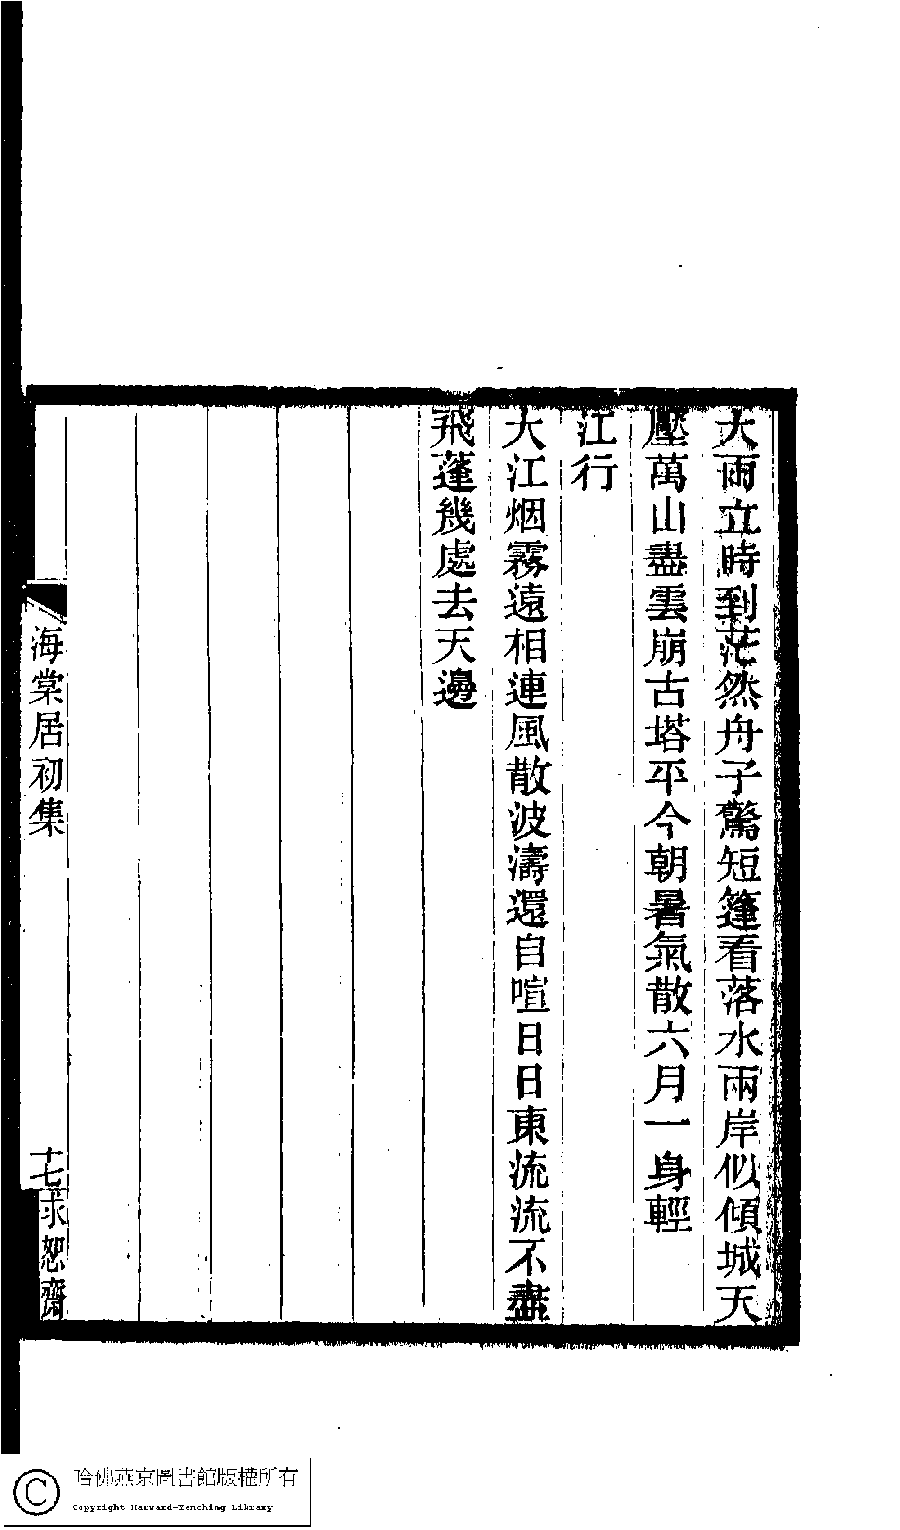 大雨立時到茫然舟子驚短篷看落水兩岸似傾城天
壓萬山盡雲崩古塔平今朝暑氣散六月一身輕
江行
大江烟霧遠相連風散波濤還自喧日日東流流不盡
飛蓬幾處去天邊
海棠居初集
十七
求恕齋
哈佛燕京圖書館版權所有
Copyright Harvard-Yenching Library